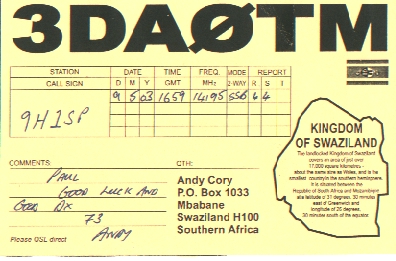 3DAØTM
STATION DATE TIME FREQ. MODE REPORT
CALL SIGN D M Y GMT MHz 2-WAY R S T
9 5 03 1659 14195 SSB 6 4
9H1SP
KINGDOM
OF SWAZILAND
The landlocked Kingdom of Swaziland
covers an area of just over
17,000 square kilometres -
about the same size as Wales, and is the
smallest country in the southern hemisphere.
It is situated between the
Republic of South Africa and Mozambique
at latitude of 31 degrees, 30 minutes
east of Greenwich and
longitude of 26 degrees,
30 minutes south of the equator.
COMMENTS:
PAUL
GOOD LUCK AND
GOOD DX
73
ANDY
Please QSL direct
QTH:
Andy Cory
P.O. Box 1033
Mbabane
Swaziland H100
Southern Africa